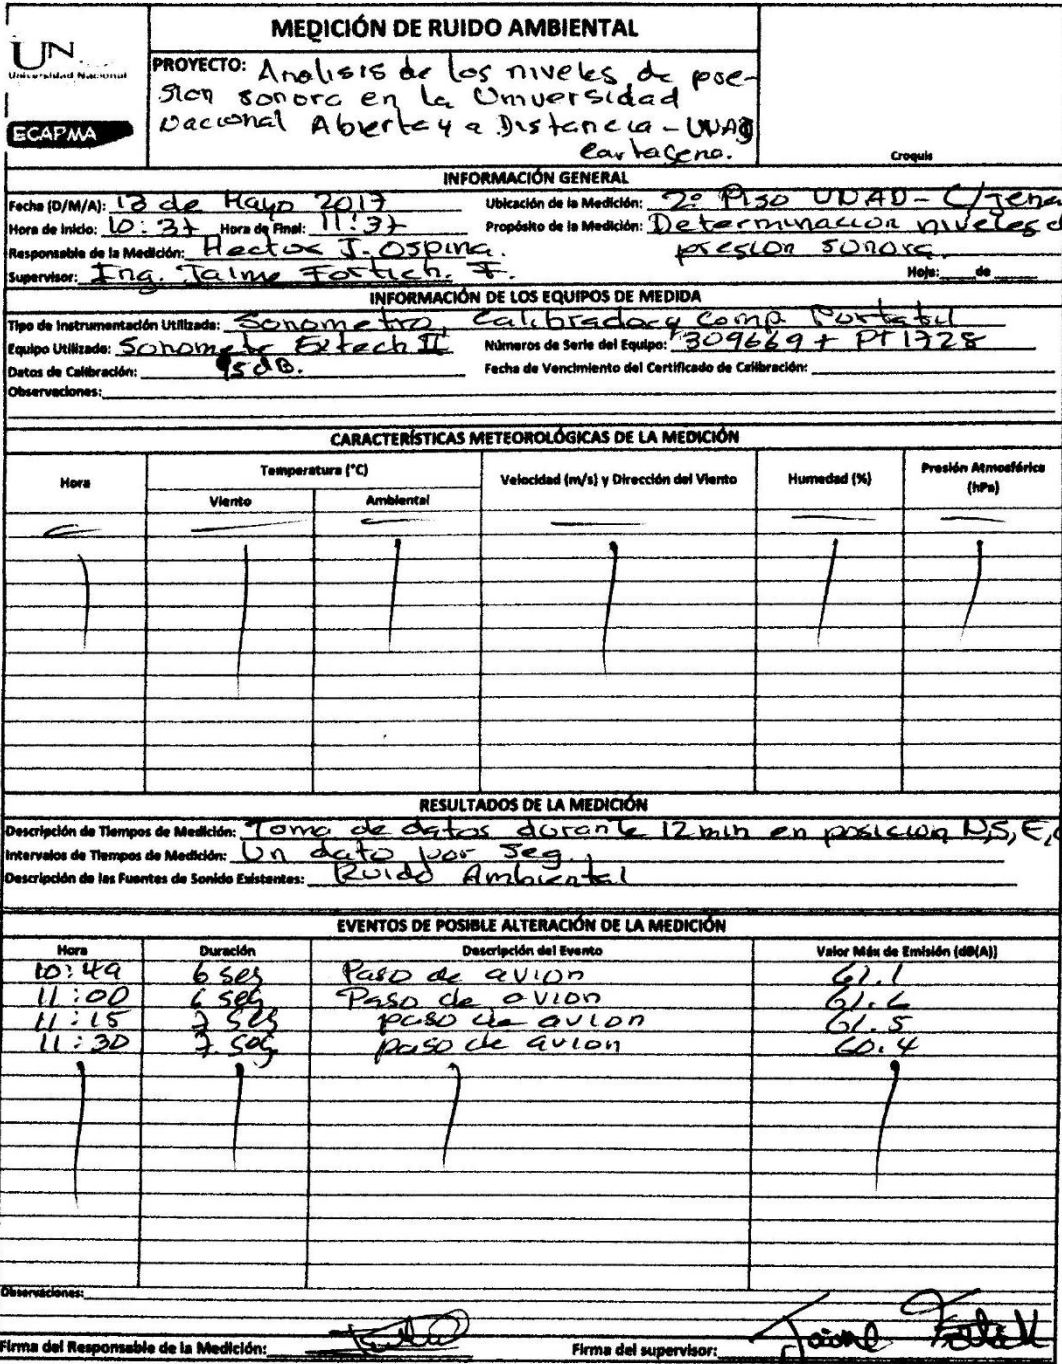 UN
Universidad Nacional
ECAPMA
MEDICIÓN DE RUIDO AMBIENTAL
PROYECTO: Analisis de los niveles de pre-
sion sonora en la Universidad
Nacional Abierta y a Distancia - UNAD
Cartagena.
Croquis
INFORMACIÓN GENERAL
Fecha (D/M/A): 13 de Mayo 2017 Ubicación de la Medición: 2º Piso UNAD - C/gena
Hora de Inicio: 10:37 Hora de Final: 11:37 Propósito de la Medición: Determinacion niveles d
Responsable de la Medición: Hector J. Ospina. presion sonora.
Supervisor: Ing. Jaime Fortich. F. Hoja: de
INFORMACIÓN DE LOS EQUIPOS DE MEDIDA
Tipo de Instrumentación Utilizada: Sonometro, Calibrador y Comp Portatil
Equipo Utilizado: Sonometro Extech II Números de Serie del Equipo: 309669 + PT1728
Datos de Calibración: 95 dB. Fecha de Vencimiento del Certificado de Calibración:
Observaciones:
CARACTERÍSTICAS METEOROLÓGICAS DE LA MEDICIÓN
Hora Temperatura (°C) Velocidad (m/s) y Dirección del Viento Humedad (%) Presión Atmosférica (hPa)
Viento Ambiental
RESULTADOS DE LA MEDICIÓN
Descripción de Tiempos de Medición: Toma de datos durante 12 min en posicion N,S,E,
Intervalos de Tiempos de Medición: Un dato por seg.
Descripción de las Fuentes de Sonido Existentes: Ruido Ambiental
EVENTOS DE POSIBLE ALTERACIÓN DE LA MEDICIÓN
Hora Duración Descripción del Evento Valor Máx de Emisión (dB(A))
10:49 6 seg Paso de avion 61.1
11:00 6 seg Paso de avion 61.6
11:15 seg paso de avion 61.5
11:30 7. seg paso de avion 60.4
Observaciones:
Firma del Responsable de la Medición: Firma del supervisor: Jaime Fortich